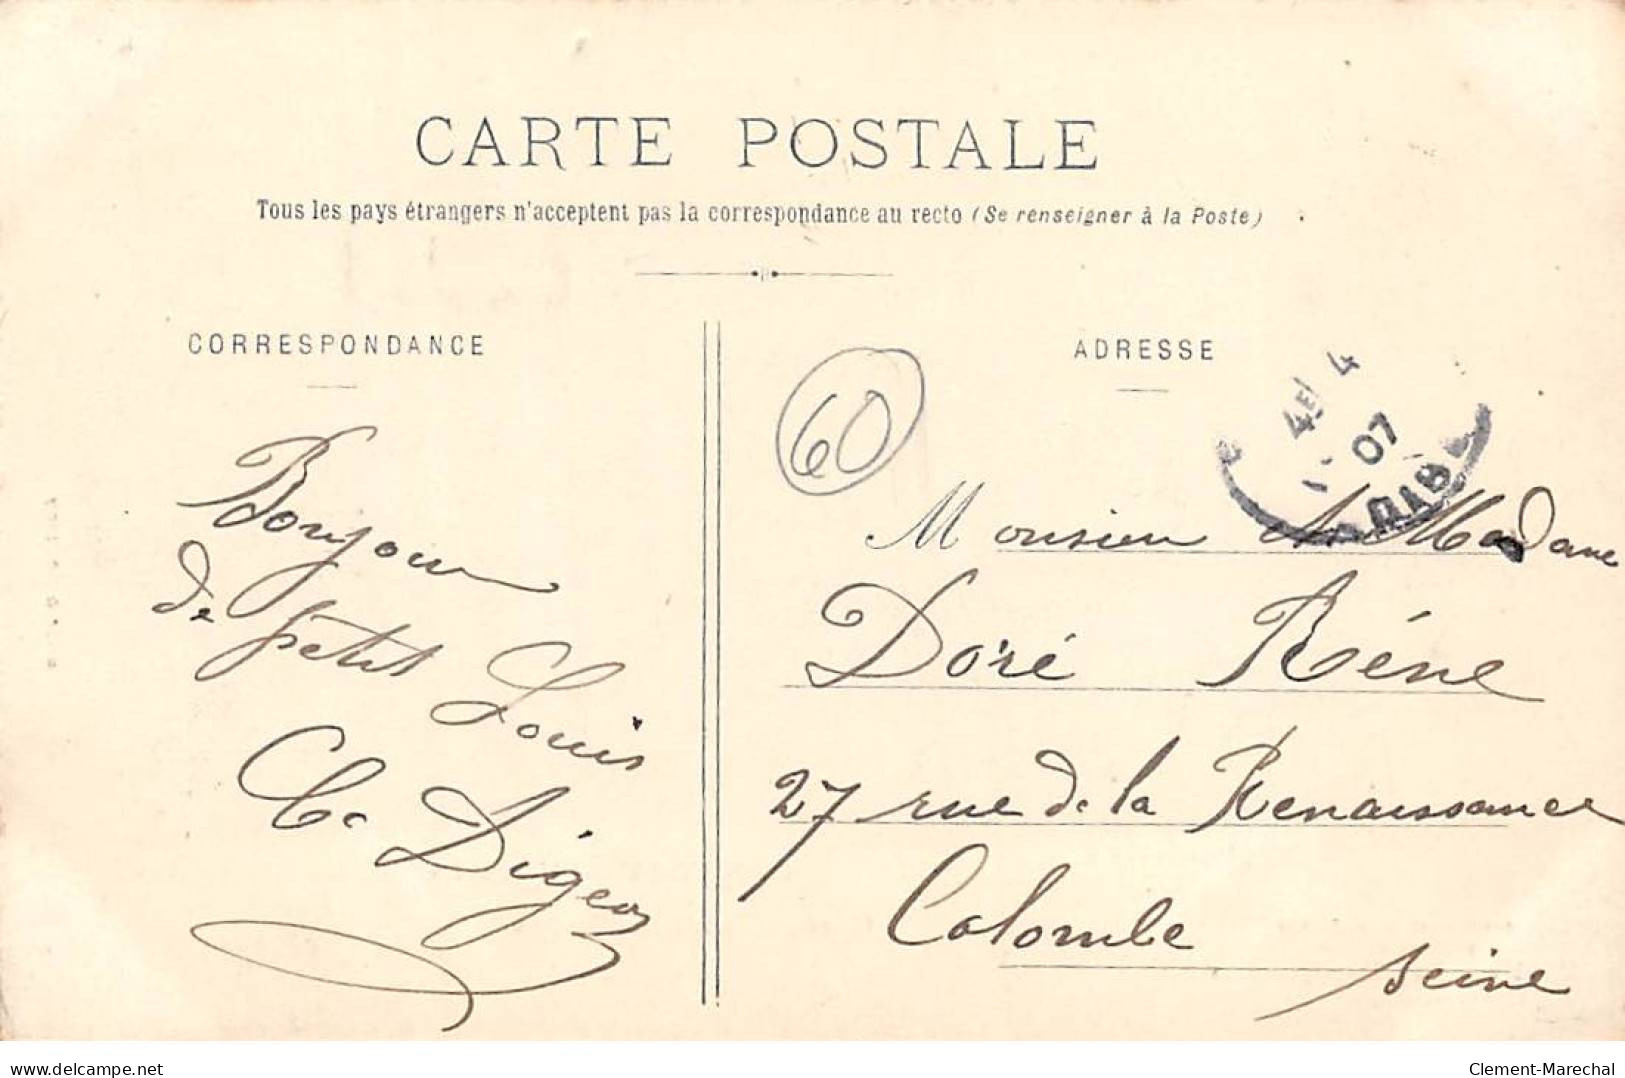 CARTE POSTALE
Tous les pays étrangers n'acceptent pas la correspondance au recto (Se renseigner à la Poste)
CORRESPONDANCE
Bonjour
de petit Louis
Digeon
ADRESSE
60
4E 4
07
Monsieur et Madame
Doré Réne
27 rue de la Renaissance
Colombe
Seine
www.delcampe.net
Clement-Marechal